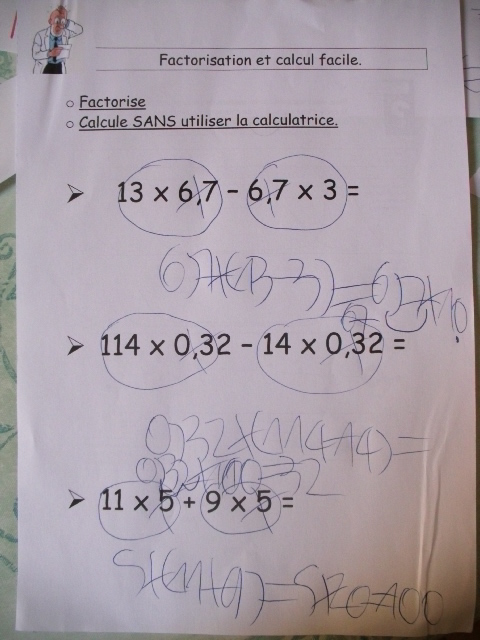 Factorisation et calcul facile.
o Factorise
o Calcule SANS utiliser la calculatrice.
➤ 13 x 6,7 – 6,7 x 3 =
6,7x(13-3)=6,7x10
67
➤ 114 x 0,32 – 14 x 0,32 =
0,32x(114-14)=
0,32x100=32
➤ 11 x 5 + 9 x 5 =
5x(11+9)=5x